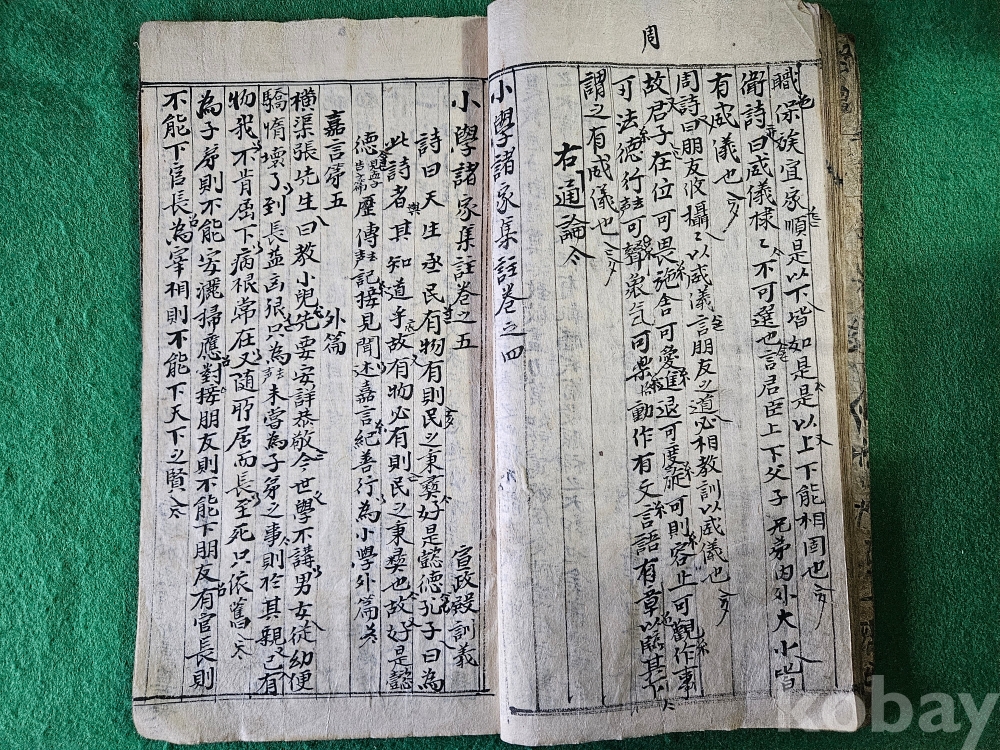 周
職保族宜家順是以下皆如是是以上下能相固也
衛詩曰威儀棣々不可選也言君臣上下父子兄弟內外大小皆
有威儀也
周詩曰朋友攸攝々以威儀言朋友之道必相教訓以威儀也
故君子在位可畏施舍可愛進退可度周旋可則容止可觀作事
可法德行可聲氣可樂動作有文言語有章以臨其下
謂之有威儀也
右通論
小學諸家集註卷之四
小學諸家集註卷之五
宣政殿訓義
詩曰天生烝民有物有則民之秉彝好是懿德孔子曰為
此詩者其知道乎故有物必有則民之秉彝也故好是懿
德歷傳記接見聞述嘉言紀善行為小學外篇
外篇
嘉言第五
橫渠張先生曰教小兒先要安詳恭敬今世學不講男女從幼便
驕惰壞了到長益凶狠只為未嘗為子弟之事則於其親已有
物我不肯屈下病根常在又隨所居而長至死只依舊
為子弟則不能安灑掃應對接朋友則不能下朋友有官長則
不能下官長為宰相則不能下天下之賢
kobay